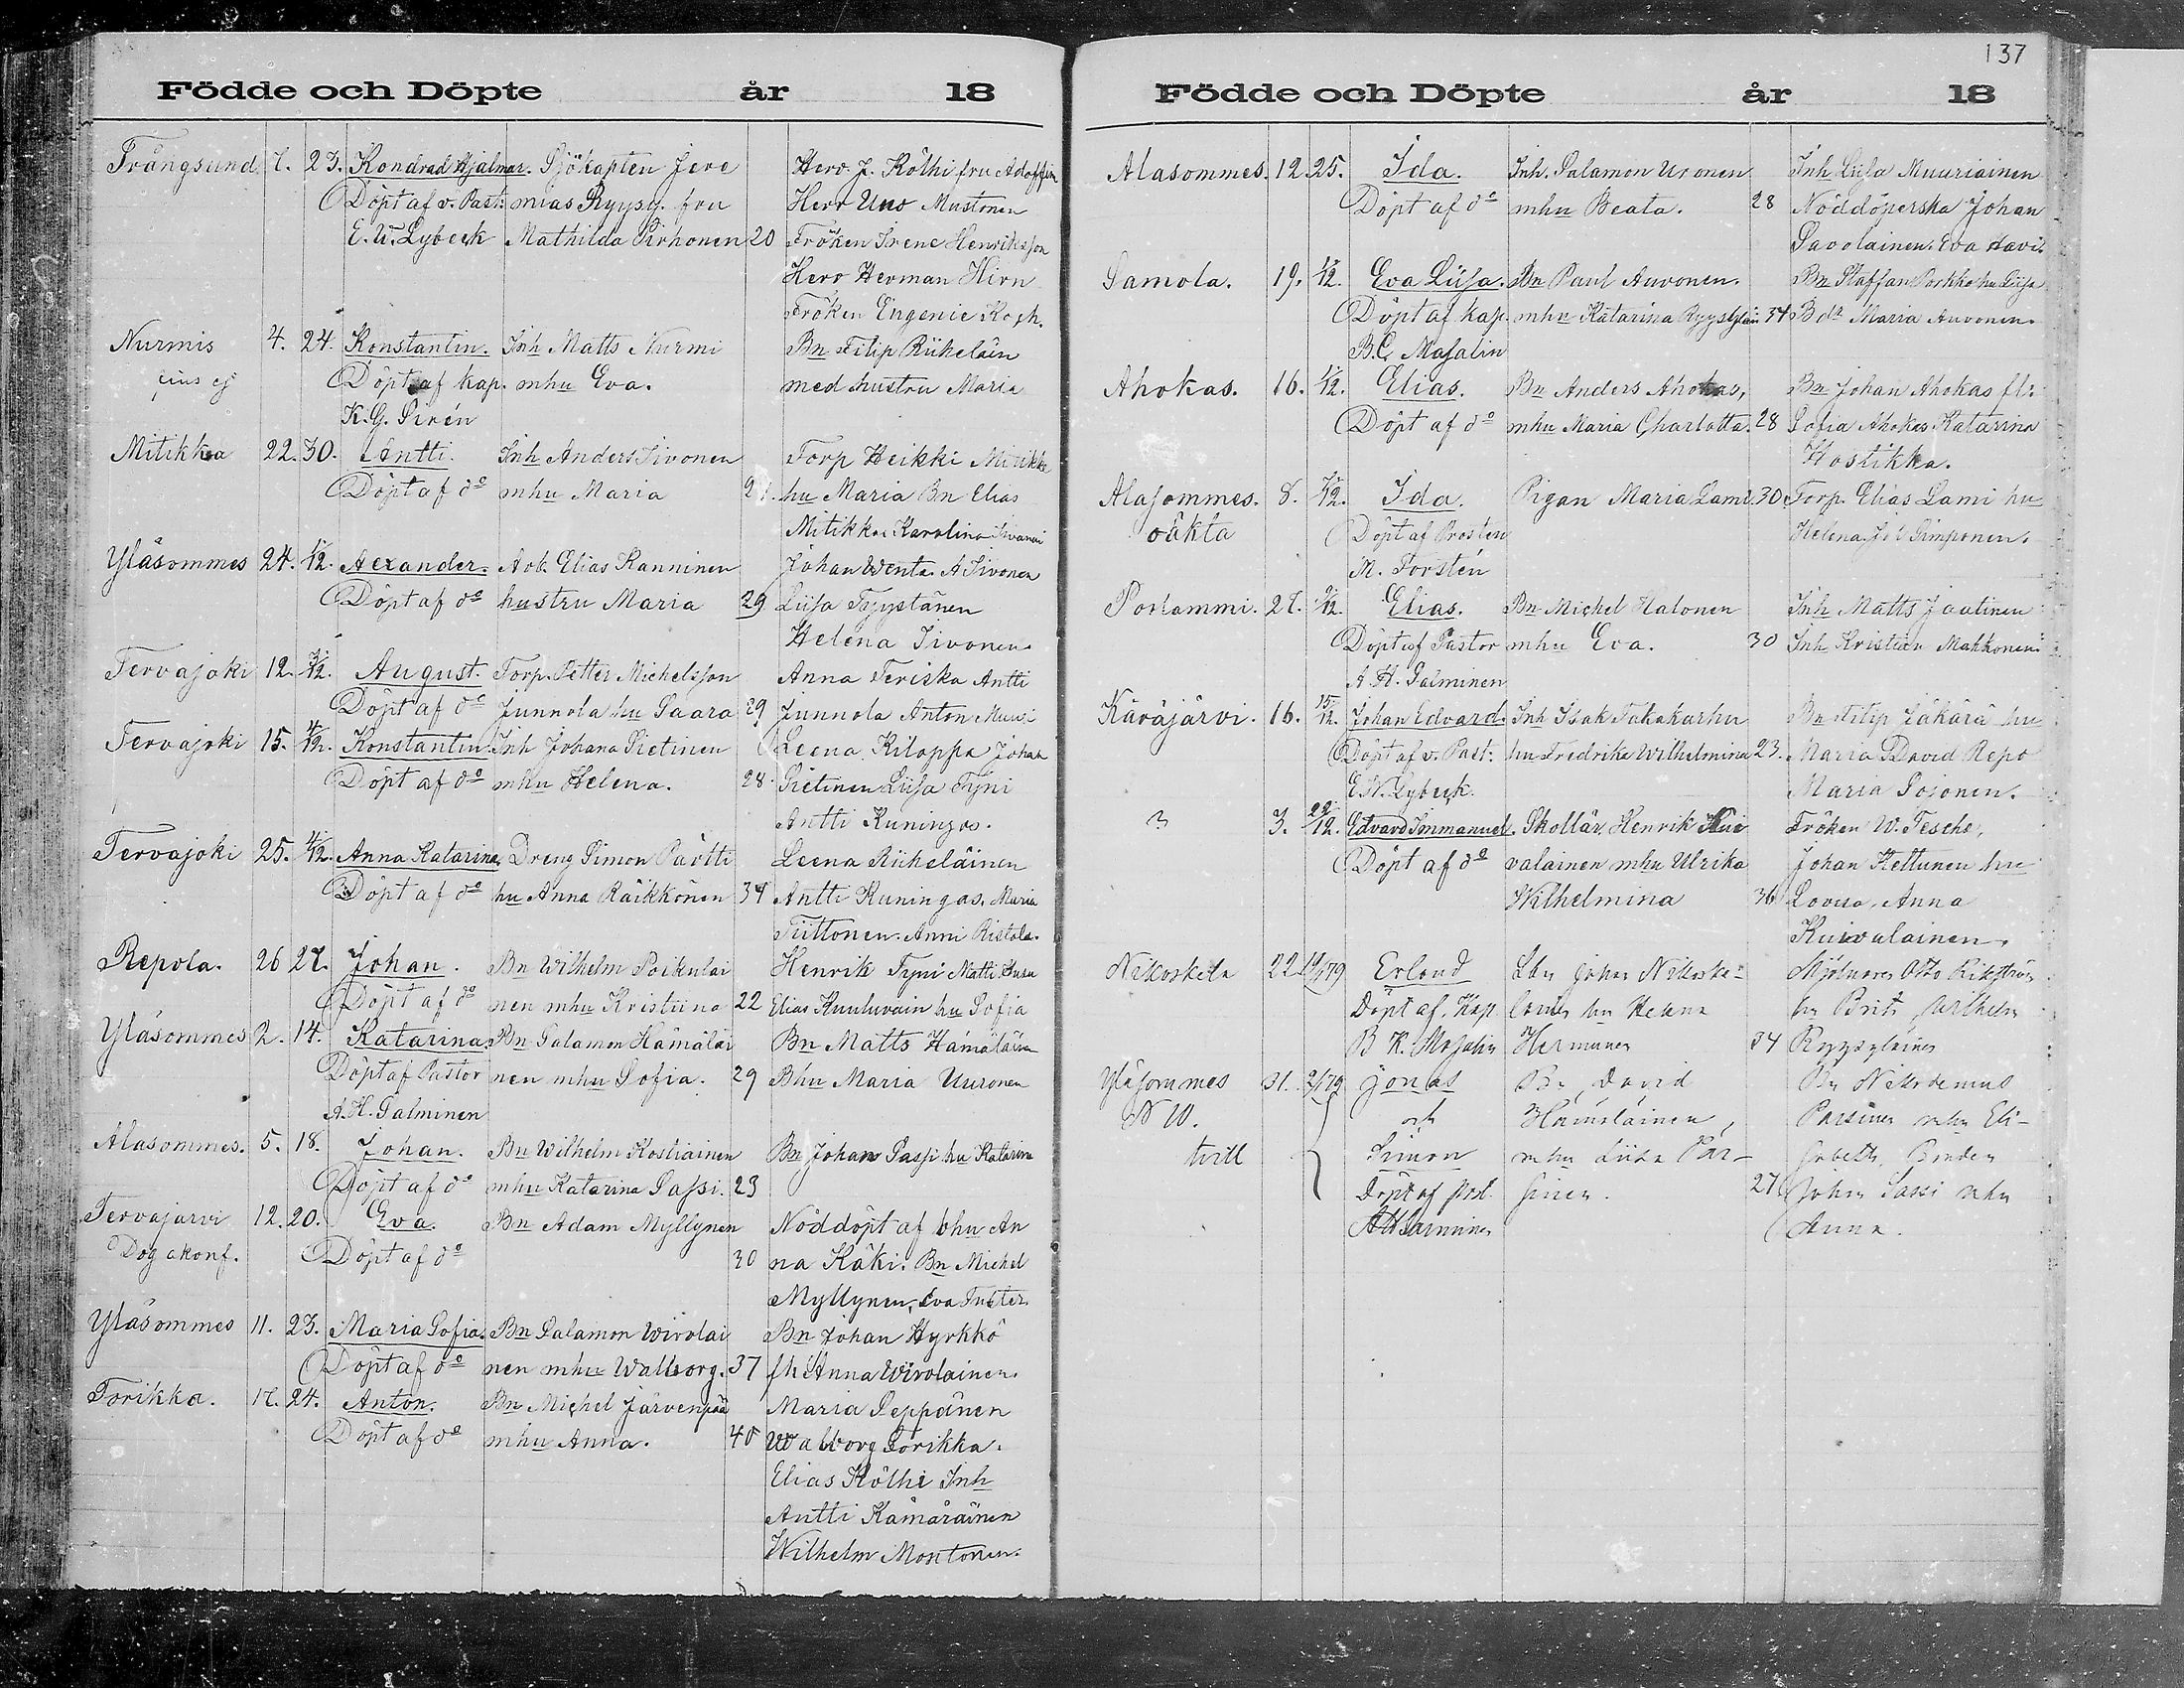 Födde och Döpte år 18
Trångsund 7. 23. Kondrad Hjalmar. Sjökapten Jere Herr J. Köthi fru Adolffin
Döpt af v. Past: mias Ryysy. fru Herr Uno Mustonen
E. W. Lybeck Mathilda Pirhonen 20 Fröken Irene Henriksson
Herr Herman Hirn
Fröken Eugenie Koch.
Nurmis 4. 24. Konstantin. Inh Matts Nurmi Bn Filip Riikeläin
Döpt af kap. mhu Eva. med hustru Maria
K. G. Sirén
Mitikka 22. 30. Antti. Inh Anders Sivonen Torp Heikki Mitikka
Döpt af do mhu Maria hu Maria Bn Elias
Mitikka Karolina Sivonen
Yläsommes 24. 1/12. Aexander. Arb. Elias Ranninen Johan Wenta A Sivonen
Döpt af do hustru Maria 29 Liisa Tyystänen
Helena Sivonen
Tervajoki 12. 3/12. August. Torp. Petter Michelsson Anna Teriska Antti
Döpt af do Junnola hu Saara 29 Junnola Anton Muusi
Tervajoki 15. 4/12. Konstantin. Inh Johana Sietinen Leena Kiloppa Johan
Döpt af do mhu Helena. 28. Sietinen Liisa Tyni
Antti Kuningas.
Tervajoki 25. 4/12. Anna Katarina. Dreng Simon Pärtti Leena Riikeläinen
Döpt af do hu Anna Räikkönen 34 Antti Kuningas. Maria
Tiittonen. Anni Ristola.
Repola. 26 27. Johan. Bn Wilhelm Poikulai Henrik Tyni Matti Susu
Döpt af do nen mhu Kristiina 22 Elias Kuuluvain hu Sofia
Yläsommes 2. 14. Katarina. Bn Salamon Hämäläi Bn Matts Hämäläinen
Döpt af Pastor nen mhu Sofia. 29 Bhu Maria Uuronen
A. H. Salminen
Alasommes. 5. 18. Johan. Bn Wilhelm Kostiainen Bn Johan Sassi hu Katarina
Döpt af do mhu Katarina Sassi. 23
Tervajärvi 12. 20. Eva. Bn Adam Myllynen Nöddöpt af bhu An
Dog okonf. Döpt af do 30 na Käki. Bn Michel
Myllynen, Eva Tuster
Yläsommes 11. 23. Maria Sofia. Bn Salamon Wirolai Bn Johan Hyrkkö
Döpt af do nen mhu Walborg. 37 fh Anna Wirolainen.
Torikka. 17. 24. Anton. Bn Michel Järvenpää Maria Seppänen
Döpt af do mhu Anna. 40 Walborg Torikka.
Elias Köthi Inh
Antti Kämäräinen
Wilhelm Montonen.
137
Födde och Döpte år 18
Alasommes. 12 25. Ida. Inh. Salamon Uronen Inh Liisa Muuriainen
Döpt af do mhu Beata. 28 Nöddöperska Johan
Savolainen. Eva Havi.
Samola. 19. 1/12. Eva Liisa. Bn Paul Auvonen. Bn Staffan Porkka hu Liisa
Döpt af kap. mhu Katarina Ryysyläin 34 Bdr Maria Auvonen.
B. C. Masalin
Ahokas. 16. 1/12. Elias. Bn Anders Ahokas, Bn Johan Ahokas fl:
Döpt af do mhu Maria Charlotta. 28 Sofia Ahokas Katarina
Hostikka.
Alasommes. 8. Ida. Pigan Maria Lami 30 Torp. Elias Lami hu
oäkta Döpt af Prosten Helena Simponen.
M. Forstén
Porlammi. 27. 9/12 Elias. Bn Michel Halonen Inh Matts Jaatinen
Döpt af Pastor mhu Eva. 30 Inh Kristian Makkonen
A. H. Salminen
Käräjärvi. 16. 15/12. Johan Edvard. Inh Isak Takakarhu Bn Filip Jähärä hu
Döpt af v. Past: hu Fredrika Wilhelmina 23. Maria David Repo
E. W. Lybeck. Maria Soionen.
? 3. 22/12. Edvard Immanuel. Skollär. Henrik Kui Fröken W. Tesche,
Döpt af do valainen mhu Ulrika Johan Kettunen hu
Wilhelmina 36 Lovisa, Anna
Kuivalainen.
Nikoskela 22 Erland Johan Nikoske- Mjölnaren Otto
Döpt af. Kap hu Helena hu Wilhelm
B K. Masalin Hermunen 34 Ryysyläinen
Yläsommes 31. 2/179 Jonas Bn David Bn Nikodemus
N 10. och Hämäläinen, Parsinen mhu Eli-
tvill Simon mhu Liisa Par- sabeth, Bonden
Döpt af past. sinen. 27 Johan Sassi mhu
A H Salminen Anna.